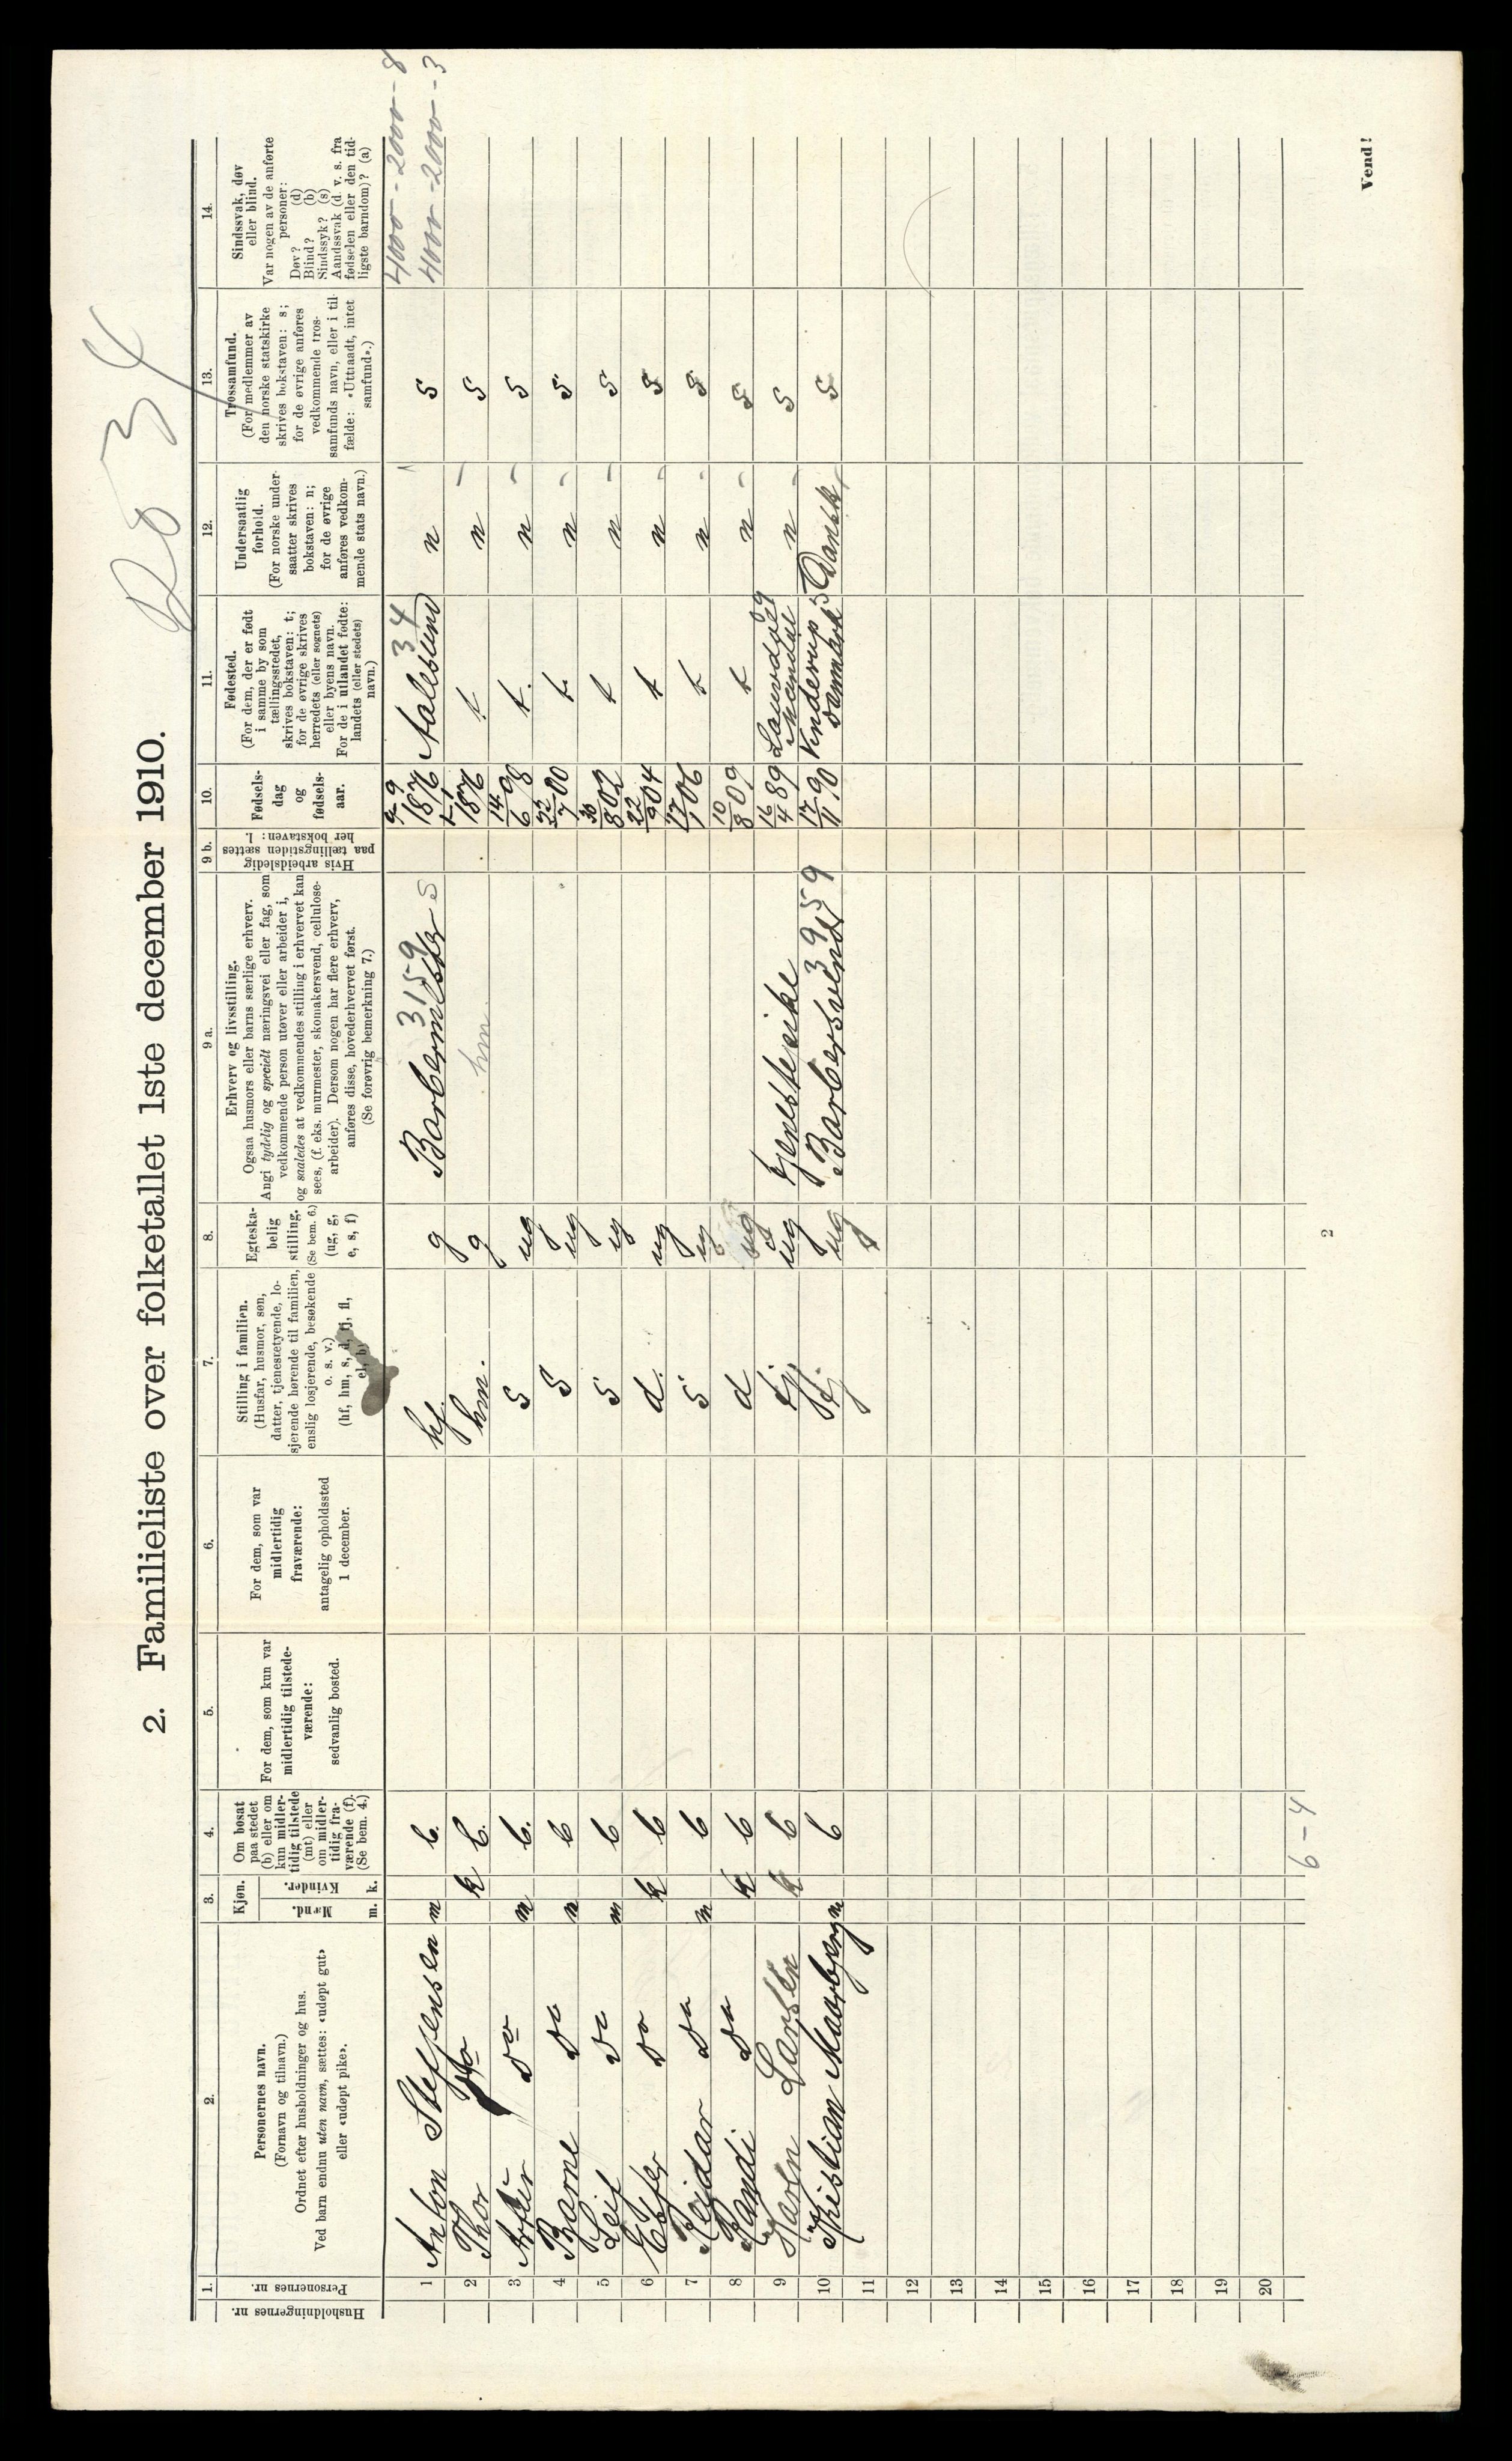 Ro 3/4
2. Familieliste over folketallet 1ste december 1910.
1.
Husholdningernes nr.
Personernes nr.
2.
Personernes navn.
(Fornavn og tilnavn.)
Ordnet efter husholdninger og hus.
Ved barn endnu uten navn, sættes: «udøpt gut»
eller «udøpt pike».
3.
Kjøn.
Mænd.
Kvinder.
m. k.
4.
Om bosat
paa stedet
(b) eller om
kun midler-
tidig tilstede
(mt) eller
om midler-
tidig fra-
værende (f).
(Se bem. 4.)
5.
For dem, som kun var
midlertidig tilstede-
værende:
sedvanlig bosted.
6.
For dem, som var
midlertidig
fraværende:
antagelig opholdssted
1 december.
7.
Stilling i familien.
(Husfar, husmor, søn,
datter, tjenestetyende, lo-
sjerende hørende til familien,
enslig losjerende, besøkende
o. s. v.)
(hf, hm, s, d, tj, fl,
el, b)
8.
Egteska-
belig
stilling.
(Se bem. 6.)
(ug, g,
e, s, f)
9 a.
Erhverv og livsstilling.
Ogsaa husmors eller barns særlige erhverv.
Angi tydelig og specielt næringsvei eller fag, som
vedkommende person utøver eller arbeider i,
og saaledes at vedkommendes stilling i erhvervet kan
sees, (f. eks. murmester, skomakersvend, cellulose-
arbeider). Dersom nogen har flere erhverv,
anføres disse, hovederhvervet først.
(Se forøvrig bemerkning 7.)
9 b.
Hvis arbeidsledig
paa tællingstiden sættes
her bokstaven: l.
10.
Fødsels-
dag
og
fødsels-
aar.
11.
Fødested.
(For dem, der er født
i samme by som
tællingsstedet,
skrives bokstaven: t;
for de øvrige skrives
herredets (eller sognets)
eller byens navn.
For de i utlandet fødte:
landets (eller stedets)
navn.)
12.
Undersaatlig
forhold.
(For norske under-
saatter skrives
bokstaven: n;
for de øvrige
anføres vedkom-
mende stats navn.)
13.
Trossamfund.
(For medlemmer av
den norske statskirke
skrives bokstaven: s;
for de øvrige anføres
vedkommende tros-
samfunds navn, eller i til-
fælde: «Uttraadt, intet
samfund».)
14.
Sindssvak, døv
eller blind.
Var nogen av de anførte
personer:
Døv? (d)
Blind? (b)
Sindssyk? (s)
Aandssvak (d. v. s. fra
fødselen eller den tid-
ligste barndom)? (a)
4000 - 2000 - 8
4000 - 2000 - 3
1 Anton Steffensen m b. hf. g Barbermester 3159 s 9/9 1876 Aalesund 34 n s
2 Thor Do k b. hm. g hm 1876 t n s
3 Do m b. s ug 14/6 98 t. n s
4 Barne Do m b s ug 23/7 00 t. n s
5 Leif Do m b s ug 30/8 02 t n s
6 Ester Do k b d. ug 22/9 04 t n s
7 Reidar Do m b s ug 17/1 06 t n s
8 Randi Do k b d ug 10/8 09 t n s
9 Karen Larsen k b tj. ug tjenestepike 16/4 89 Mandal n s
10 Kristian Maarbjerg m b tj ug Barbersvend 3959 17/11 90 Vinderup Danmark Dansk s
11
12
13
14
15
16
17
18
19
20
6 - 4
2
Vend!